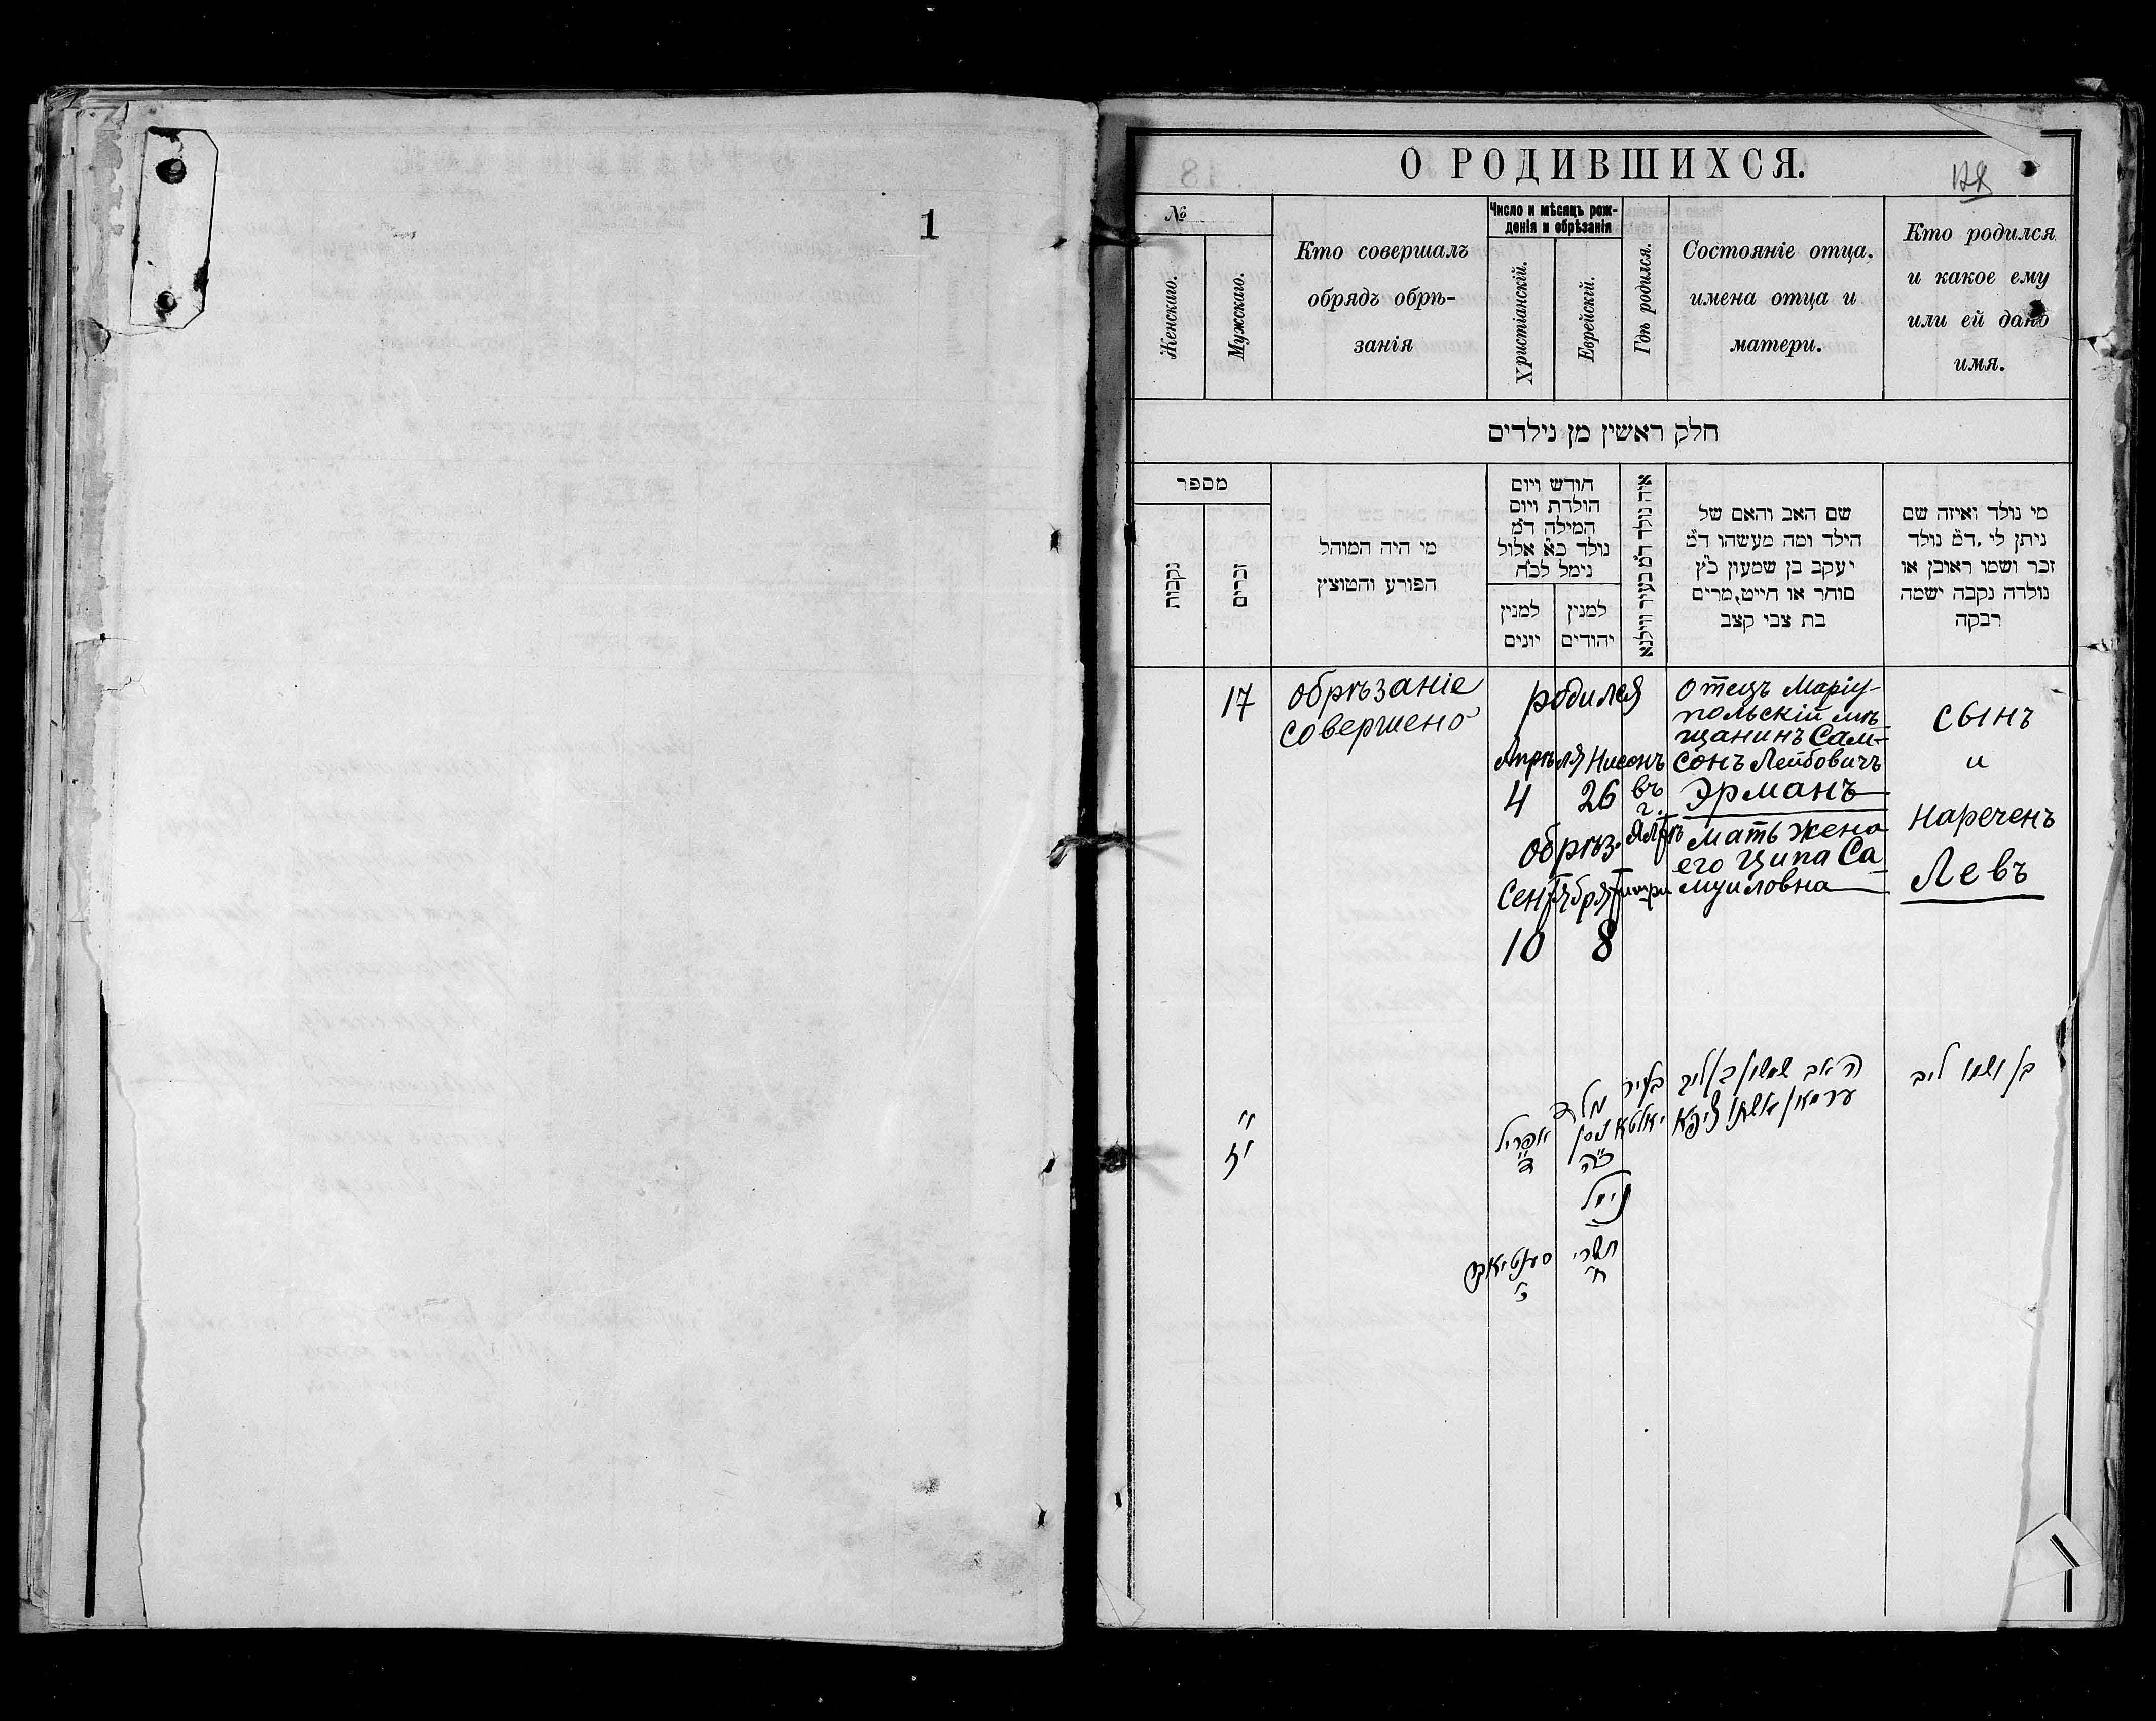 1
О РОДИВШИХСЯ.
№
Женскаго.
Мужскаго.
Кто совершалъ
обрядъ обрѣ-
занія
Число и мѣсяцъ рож-
денія и обрѣзанія
Христіанскій.
Еврейскій.
Гдѣ родился.
Состояніе отца,
имена отца и
матери.
Кто родился
и какое ему
или ей дано
имя.
חלק ראשין מן נילדים
מספר
נקבות
זכרים
מי היה המוהל
הפורע והמוצץ
חודש ויום
הולדת ויום
המילה ד״מ
נולד כ״א אלול
נימל לכ״ח
למנין
יונים
למנין
יהודים
איה נולד ד״מ בעיר ווילנא
שם האב והאם של
הילד ומה מעשהו ד״מ
יעקב בן שמעון כ״ץ
סוחר או חייט, מרים
בת צבי קצב
מי נולד ואיזה שם
ניתן לו, ד״מ נולד
זכר ושמו ראובן או
נולדה נקבה ישמה
רבקה
17
обрѣзаніе
совершено
родился
Апрѣля Нисонъ
4 26
въ
г.
Ялтѣ
обрѣз.
Сентября Тишри
10 8
Отецъ Маріу-
польскій мѣ
щанинъ Сам-
сонъ Лейбовичъ
Эрманъ
мать жена
его Ципа Са
муиловна
сынъ
и
нареченъ
Левъ
י״ז
אפריל
ד׳
ניסן
נימל
תשרי
ח׳
סענטיאבר
י׳
בעיר
יאלטא
האב שמשון בן ליב
ערמאן ואשתו ציפא
בן ושמו ליב